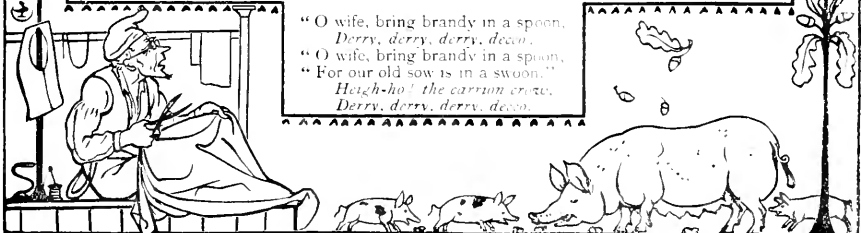 “ O wife, bring brandy in a spoon,
Derry, derry, derry, decco,
“ O wife, bring brandy in a spoon,
“ For our old sow is in a swoon.”
Heigh-ho! the carrion crow,
Derry, derry, derry, decco.